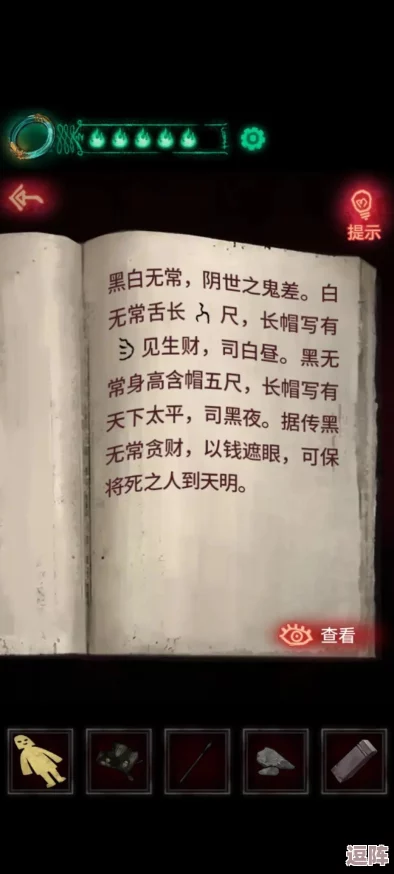 提示
黑白无常，阴世之鬼差。白
无常舌长 尺，长帽写有
见生财，司白昼。黑无
常身高含帽五尺，长帽写有
天下太平，司黑夜。据传黑
无常贪财，以钱遮眼，可保
将死之人到天明。
查看
逗阵